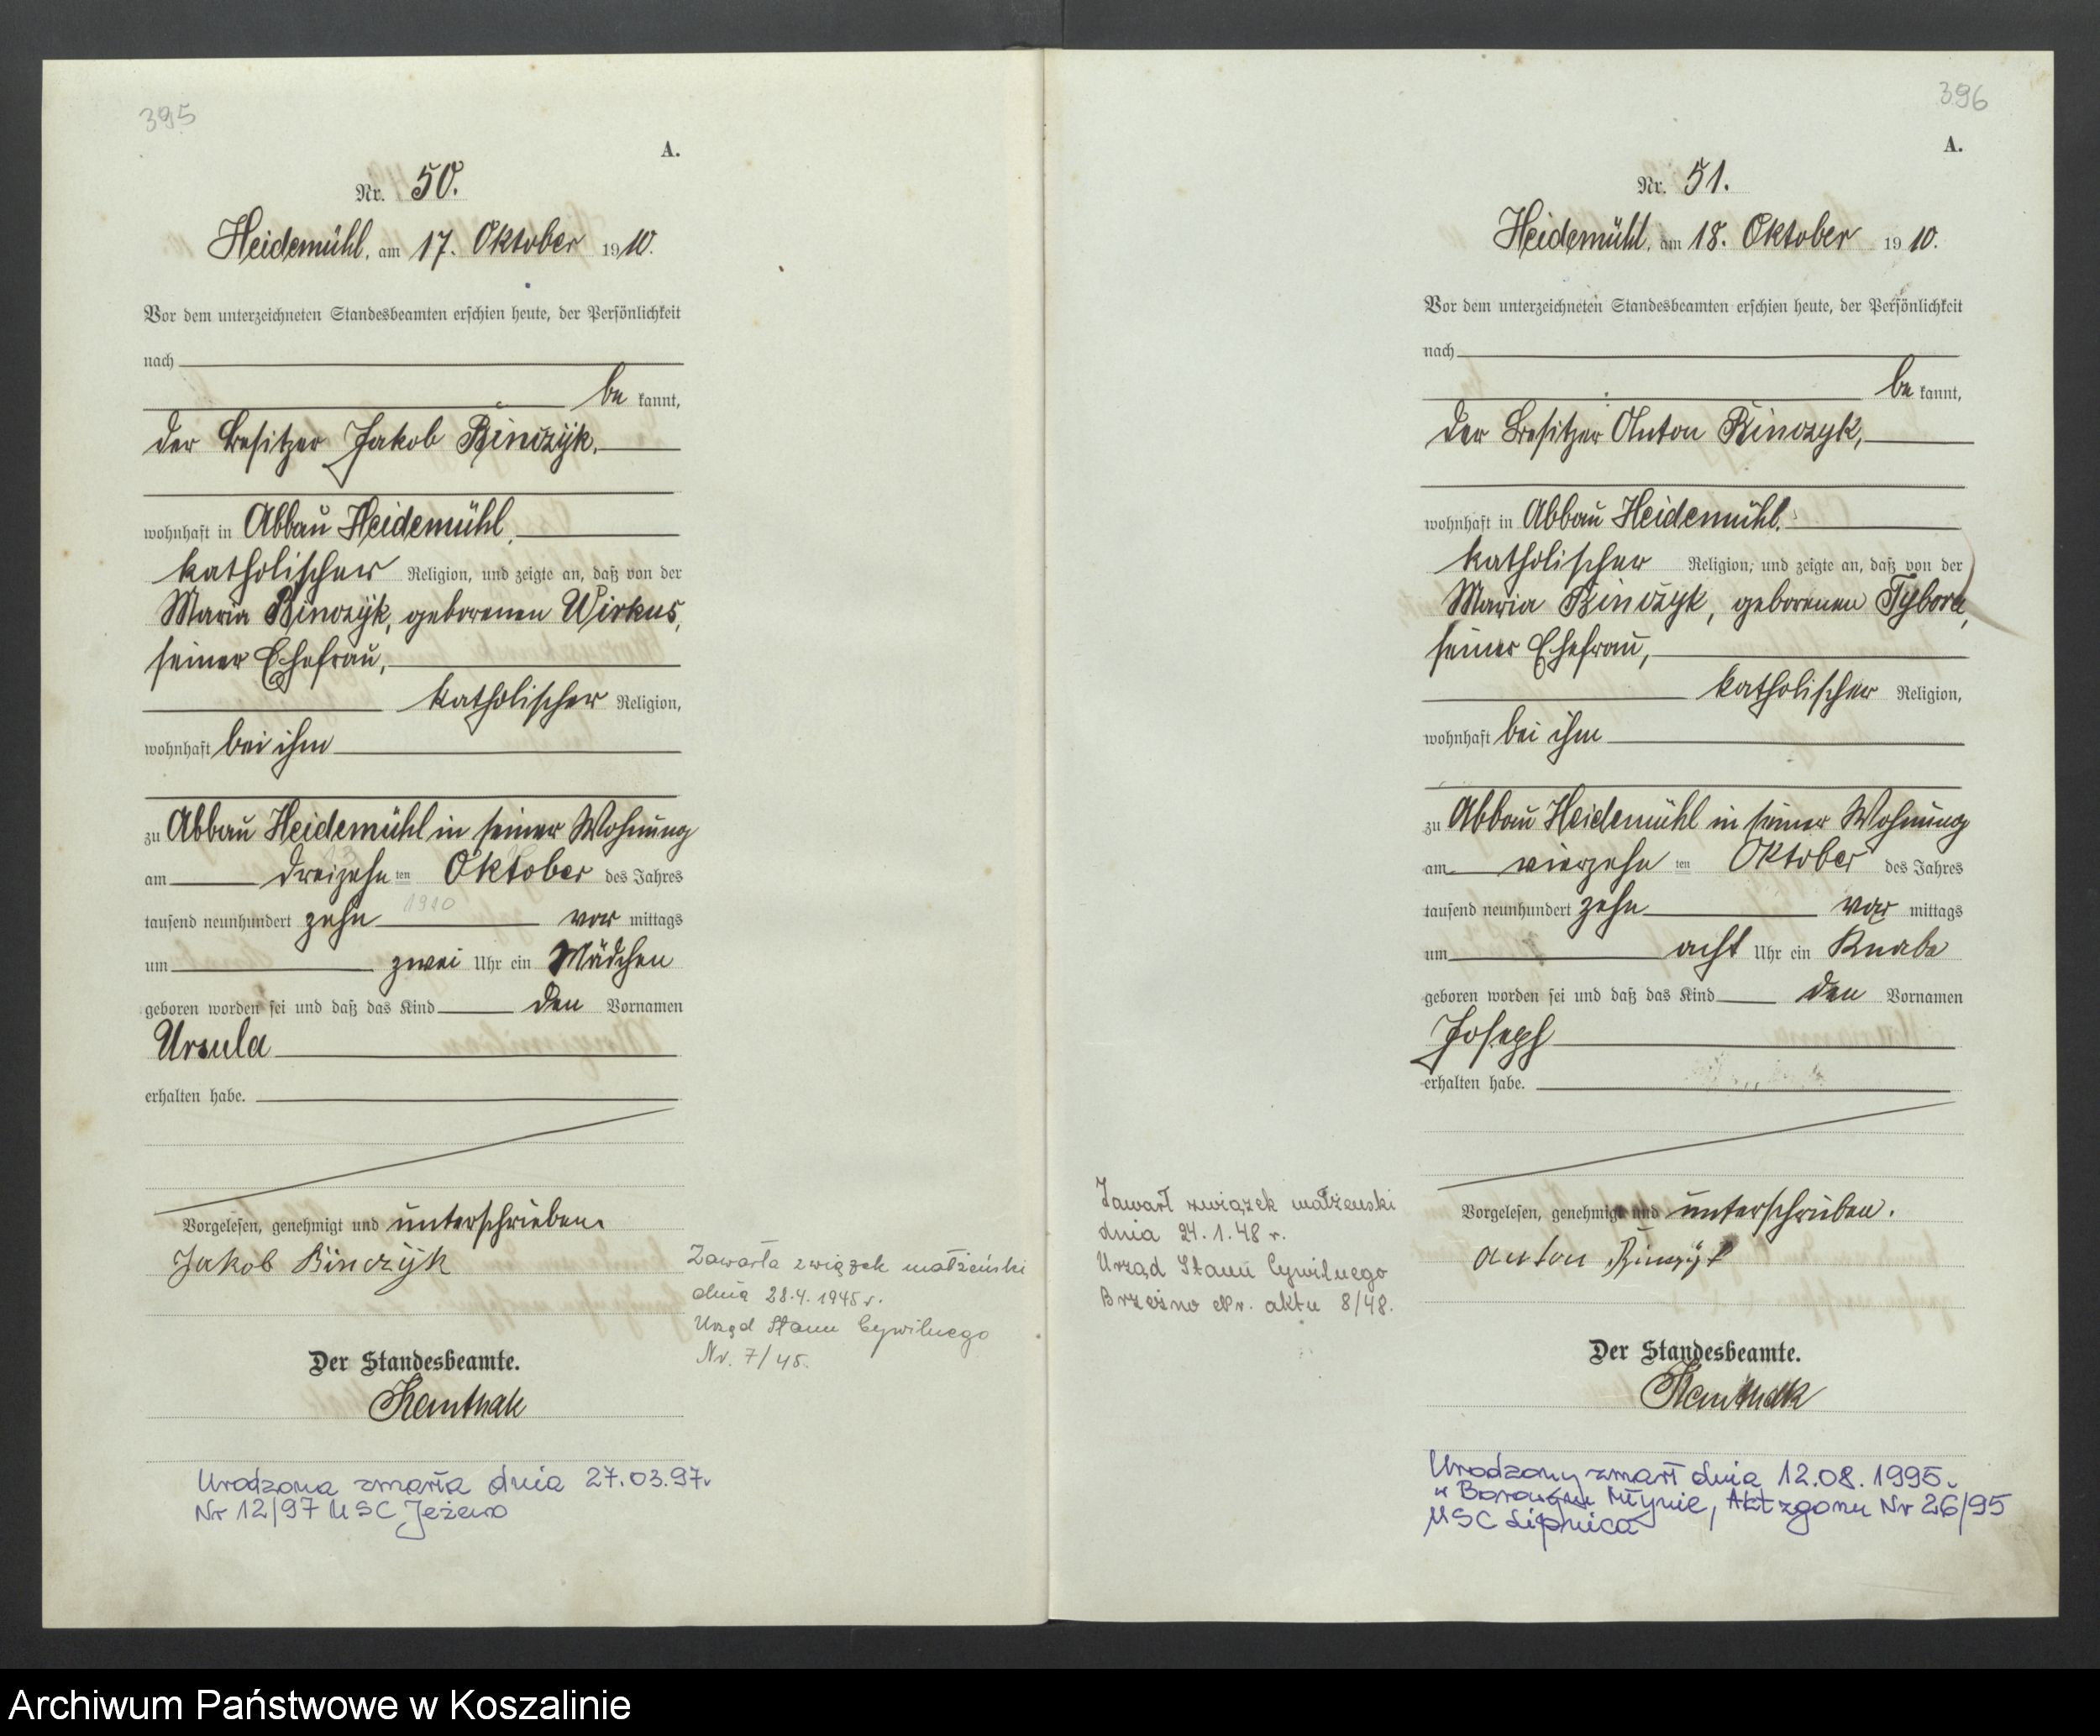 395
A.
Nr. 50.
Heidemühl, am 17. Oktober 1910.
Vor dem unterzeichneten Standesbeamten erschien heute, der Persönlichkeit
nach
be kannt,
der Besitzer Jakob Binczyk,
wohnhaft in Abbau Heidemühl,
katholischer Religion, und zeigte an, daß von der
Maria Binczyk, geborenen Wirkus,
seiner Ehefrau,
katholischer Religion,
wohnhaft bei ihm
zu Abbau Heidemühl in seiner Wohnung
am dreizehn ten Oktober des Jahres
tausend neunhundert zehn 1910 vor mittags
um zwei Uhr ein Mädchen
geboren worden sei und daß das Kind den Vornamen
Ursula
erhalten habe.
Vorgelesen, genehmigt und unterschrieben.
Jakob Binczyk
Zawarła związek małżeński
dnia 28.4.1945 r.
Urząd Stanu Cywilnego
Nr. 7/45.
Der Standesbeamte.
Urodzona zmarła dnia 27.03.97.
Nr 12/97 USC Jeżewo
396
A.
Nr. 51.
Heidemühl, am 18. Oktober 1910.
Vor dem unterzeichneten Standesbeamten erschien heute, der Persönlichkeit
nach
be kannt,
der Besitzer Anton Binczyk,
wohnhaft in Abbau Heidemühl,
katholischer Religion, und zeigte an, daß von der
Maria Binczyk, geborenen Tybora,
seiner Ehefrau,
katholischer Religion,
wohnhaft bei ihm
zu Abbau Heidemühl in seiner Wohnung
am vierzehn ten Oktober des Jahres
tausend neunhundert zehn vor mittags
um acht Uhr ein Knabe
geboren worden sei und daß das Kind den Vornamen
Joseph
erhalten habe.
Vorgelesen, genehmigt und unterschrieben.
Anton Binczyk
Zawarł związek małżeński
dnia 24.1.48 r.
Urząd Stanu Cywilnego
Brzeźno Nr. aktu 8/48.
Der Standesbeamte.
Urodzony zmarł dnia 12.08.1995.
w Borowym Młynie, Akt zgonu Nr 26/95
USC Lipnica
Archiwum Państwowe w Koszalinie